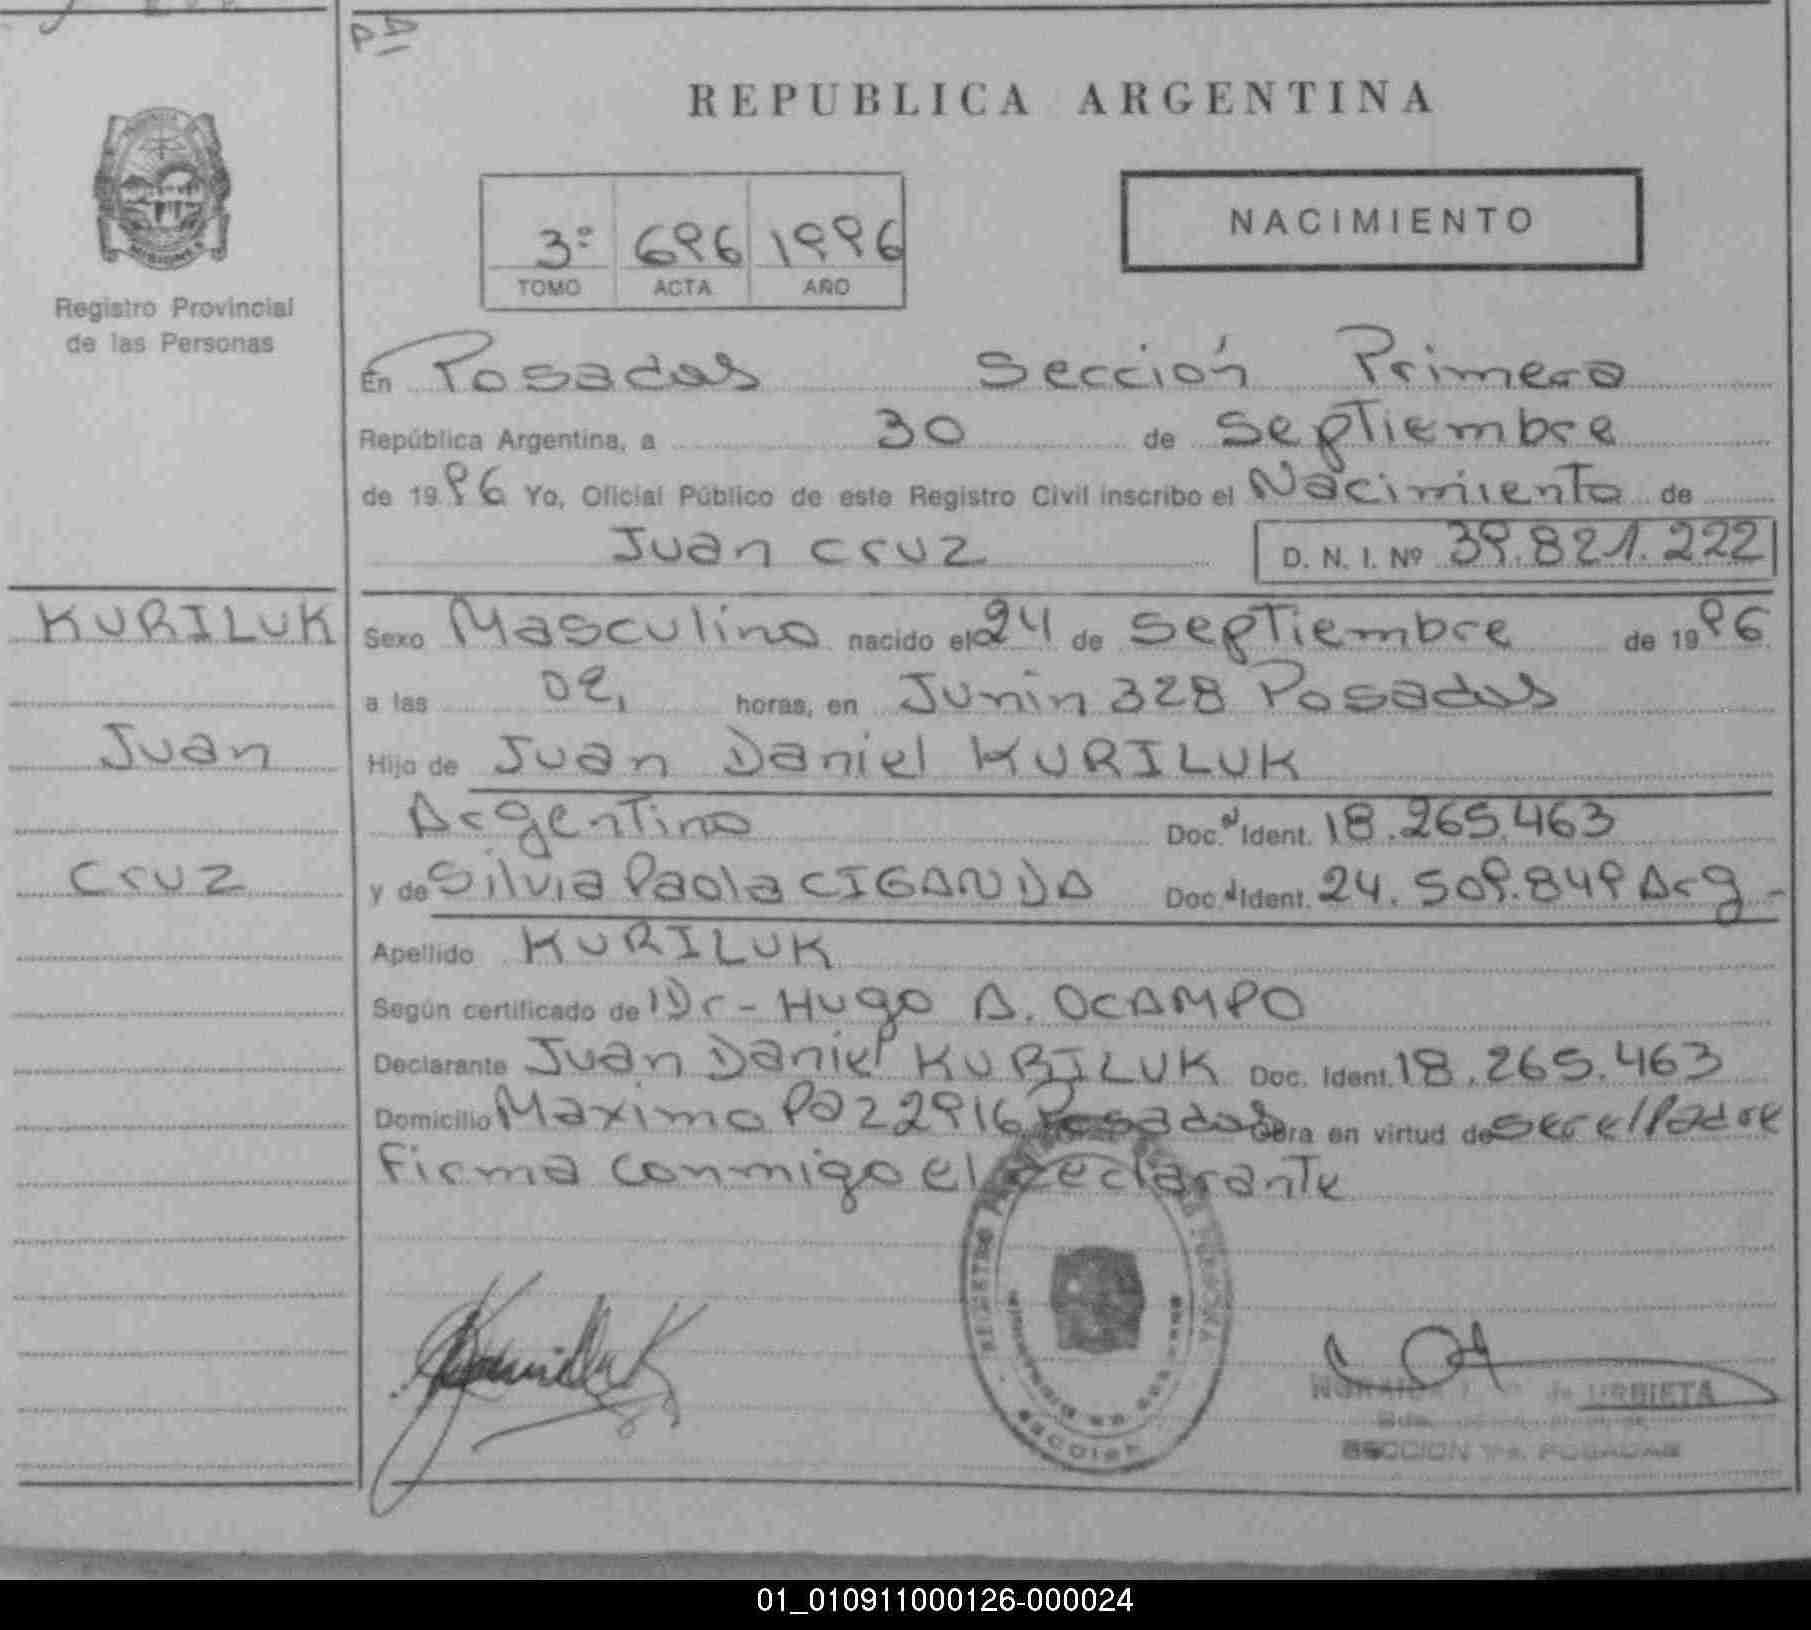 PD
REPUBLICA ARGENTINA
3º 696 1996
TOMO ACTA AÑO
NACIMIENTO
Registro Provincial
de las Personas
En Posadas Sección Primera
República Argentina, a 30 de Septiembre
de 1996 Yo, Oficial Público de este Registro Civil inscribo el Nacimiento de
Juan Cruz D. N. I. Nº 39.821.222
KURILUK
Juan
Cruz
Sexo Masculino nacido el 24 de Septiembre de 1996
a las 02, horas, en Junin 328 Posadas
Hijo de Juan Daniel KURILUK
Argentino Doc. Ident. 18.265.463
y de Silvia Paola CIGANDA Doc. Ident. 24.509.849 Arg-
Apellido KURILUK
Según certificado de Dr- Hugo A. OCAMPO
Declarante Juan Daniel KURILUK Doc. Ident. 18.265.463
Domicilio Maximo Paz 2916 Posadas Obra en virtud de ser el Padre
Firma conmigo el declarante
REGISTRO
SECCION
URBIETA
SECCION 1ra. POSADAS
01_010911000126-000024